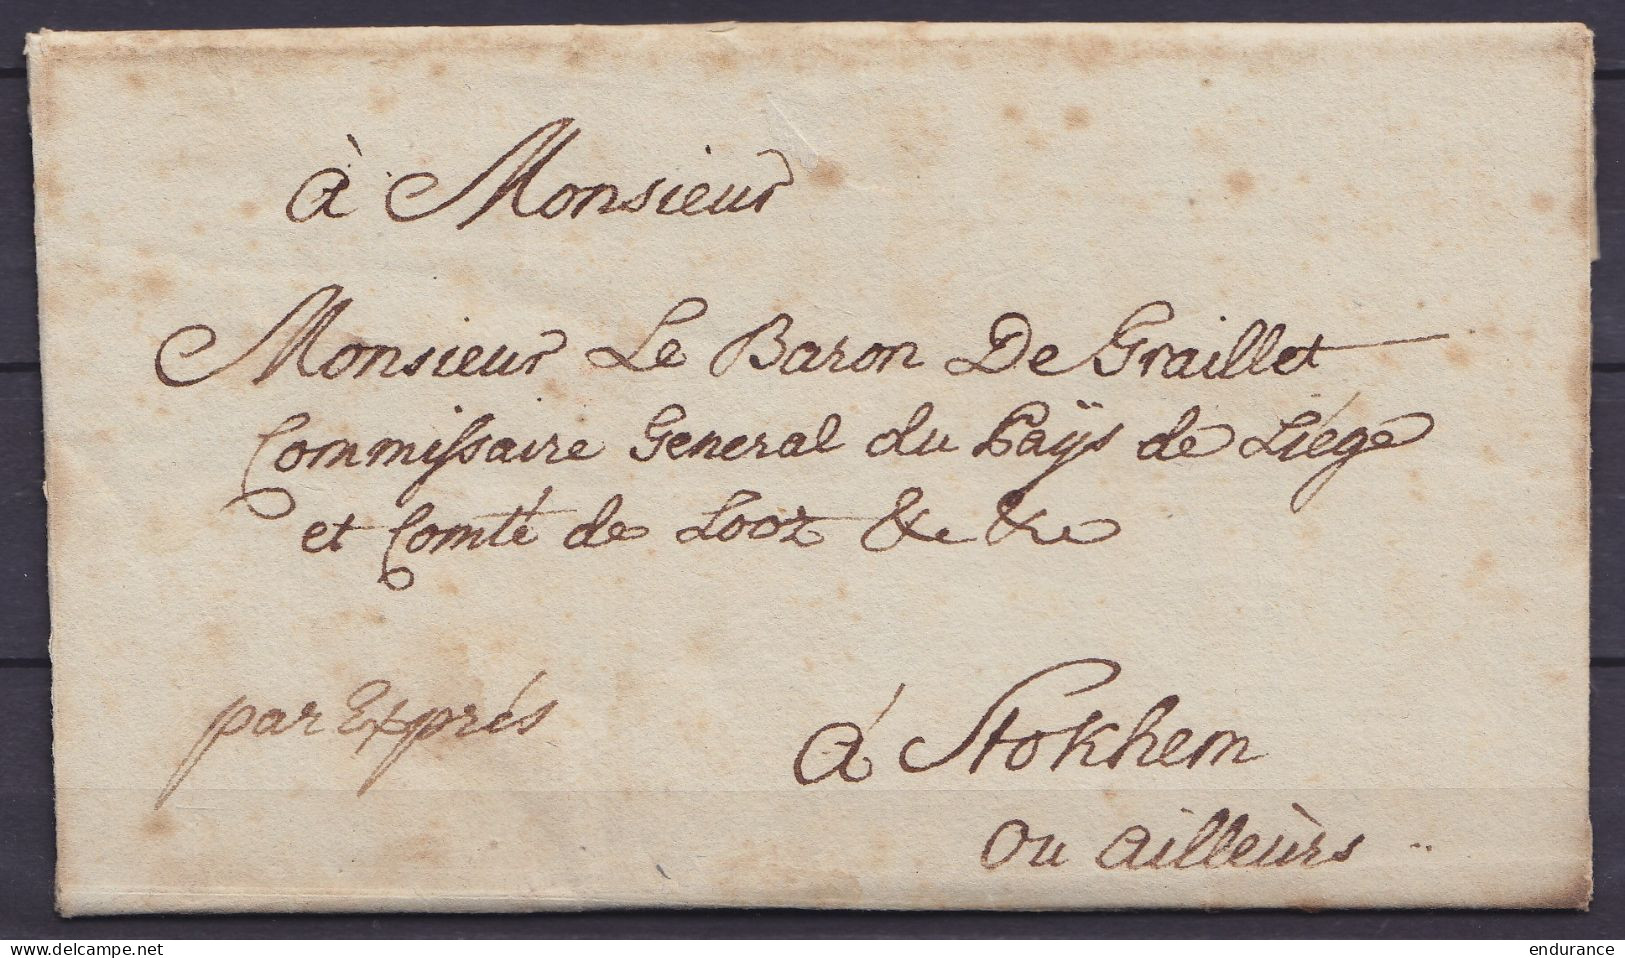 à Monsieur
Monsieur Le Baron De Graillet
Commissaire General du Païjs de Liége
et Comté de Looz &c &c
par Exprés
á Stokhem
ou ailleurs ..
delcampe.net
endurance